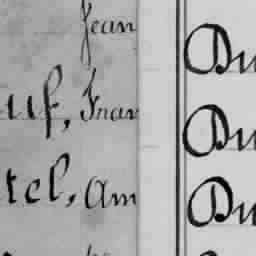 Jean Du
uf, Fran Du
tel, Am Du